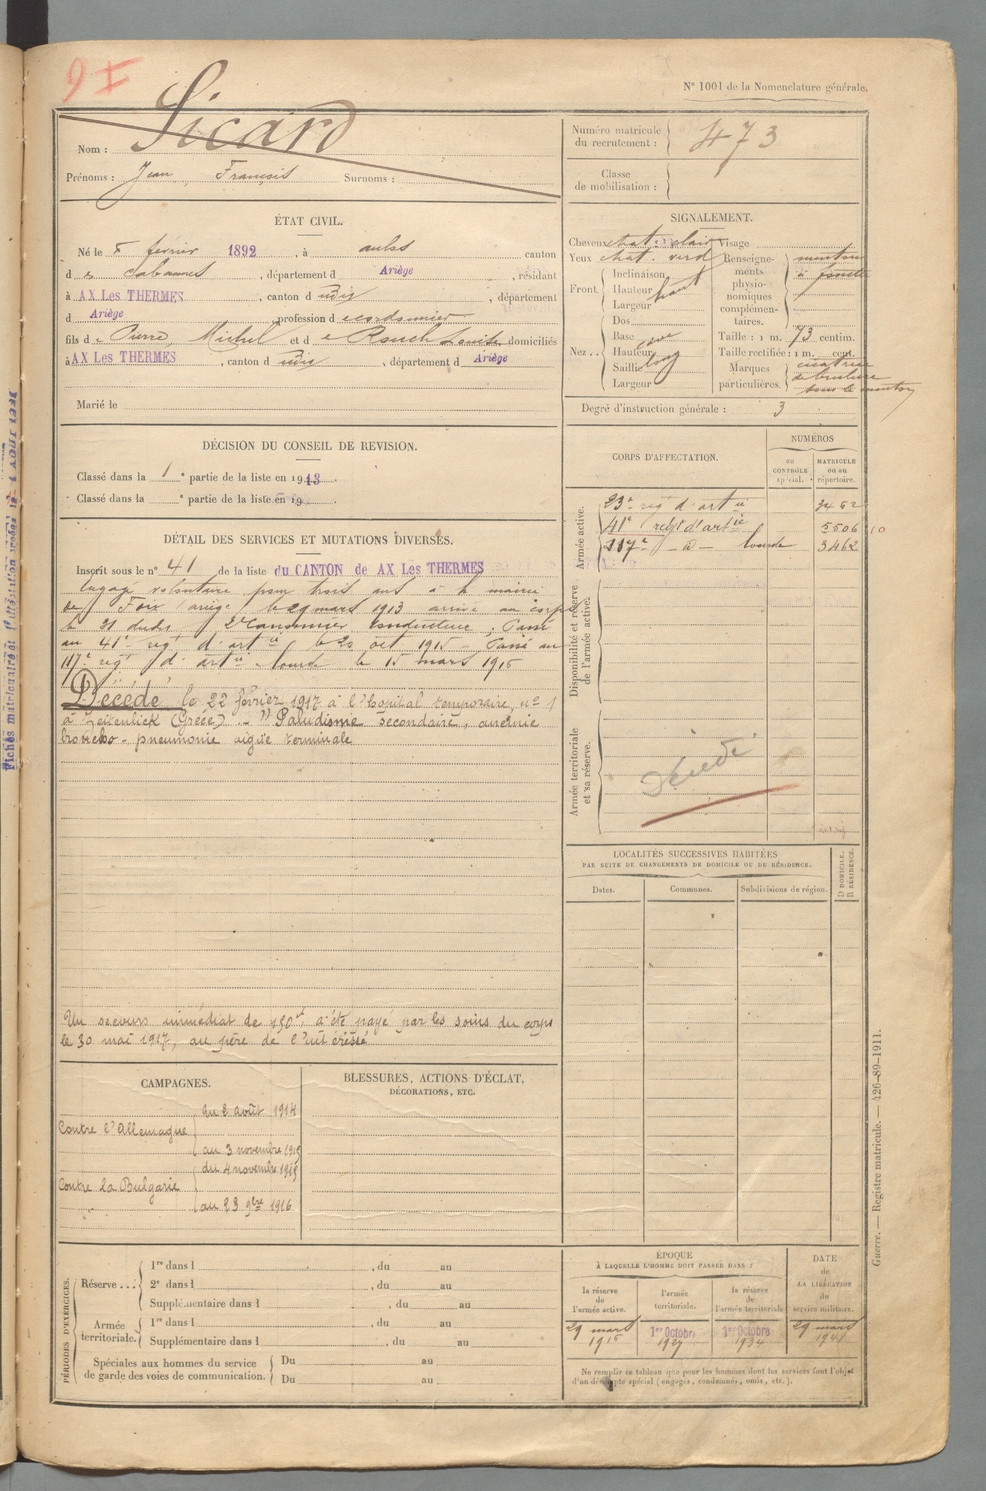 9 I
N° 1001 de la Nomenclature générale.
Nom : Sicard
Prénoms : Jean François Surnoms :
Numéro matricule du recrutement : 473
Classe de mobilisation :
ÉTAT CIVIL.
Né le février 1892, à aulos canton
d e Cabannes, département d Ariège, résidant
à AX Les THERMES, canton d udis, département
d Ariège, profession de cordonnier
fils de Pierre, Michel et de Rouch Louise domiciliés
à AX Les THERMES, canton d udis, département d Ariège
Marié le
SIGNALEMENT.
Cheveux chat. clair Visage
Yeux chat. verd Renseignements physionomiques complémentaires. menton à fossette
Front. Inclinaison
Hauteur haut
Largeur
Dos
Nez. . Base
Hauteur long
Saillie
Largeur
Taille : 1 m. 73 centim.
Taille rectifiée : 1 m. cent.
Marques particulières. cicatrice
de brulure
sous le menton
Degré d'instruction générale : 3
DÉCISION DU CONSEIL DE REVISION.
Classé dans la 1 e partie de la liste en 1913.
Classé dans la e partie de la liste en 19
DÉTAIL DES SERVICES ET MUTATIONS DIVERSES.
Inscrit sous le n° 41 de la liste du CANTON de AX Les THERMES
Engagé volontaire pour trois ans à la mairie
de Foix (ariège) le 29 mars 1913 arrivé au corps
le 31 dudit, 2e Canonnier conducteur. Passé
au 41e rég d'artie le 20 oct 1915 - Passé au
117e rég d'artie lourde le 15 mars 1916
Décédé le 22 février 1917 à l'hopital temporaire n° 1
à Zeitenlick (Grèce). - "Paludisme secondaire, anémie
broncho-pneumonie aigüe terminale
Un secours immédiat de 150f, a été payé par les soins du corps
le 30 mai 1917, au père de l'intéressé
CORPS D'AFFECTATION.
NUMÉROS
au CONTRÔLE spécial.
MATRICULE ou au répertoire.
Armée active.
23e rég d'artie 3462
41e regt d'artie 5506 10
117e - d - lourde 3462
Disponibilité et réserve de l'armée active.
Armée territoriale et sa réserve.
Décédé
LOCALITÉS SUCCESSIVES HABITÉES
PAR SUITE DE CHANGEMENTS DE DOMICILE OU DE RÉSIDENCE.
Dates. Communes. Subdivisions de région. D DOMICILE. R RÉSIDENCE.
CAMPAGNES.
Contre l'Allemagne
du 2 août 1914
au 3 novembre 1915
Contre la Bulgarie
du 4 novembre 1915
au 23 9bre 1916
BLESSURES, ACTIONS D'ÉCLAT,
DÉCORATIONS, ETC.
PÉRIODES D'EXERCICES.
Réserve . . .
1re dans l , du au
2e dans l , du au
Supplémentaire dans l , du au
Armée territoriale.
1re dans l , du au
Supplémentaire dans l , du au
Spéciales aux hommes du service de garde des voies de communication.
Du au
Du au
ÉPOQUE
À LAQUELLE L'HOMME DOIT PASSER DANS :
la réserve de l'armée active.
l'armée territoriale.
la réserve de l'armée territoriale
DATE de LA LIBÉRATION du service militaire.
29 mars 1916
1er Octobre 1927
1er Octobre 1934
29 mars 1941
Ne remplir ce tableau que pour les hommes dont les services font l'objet
d'un décompte spécial (engagés, condamnés, omis, etc.).
Guerre. — Registre matricule. — 426-89-1911.